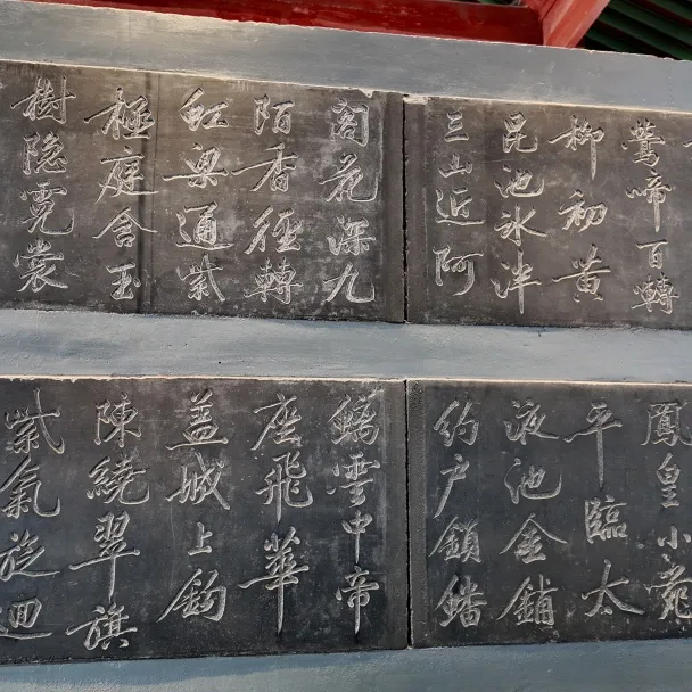 鶯啼百轉
柳初黃
昆池冰泮
三山近阿
閣花深九
陌香徑轉
虹梁通紫
極庭含玉
樹隐霓裳
鳳皇小苑
平臨太
液池金鋪
約户鎖
雲中帝
座飛華
盖城上鈎
陳繞翠旗
紫氣旋迴